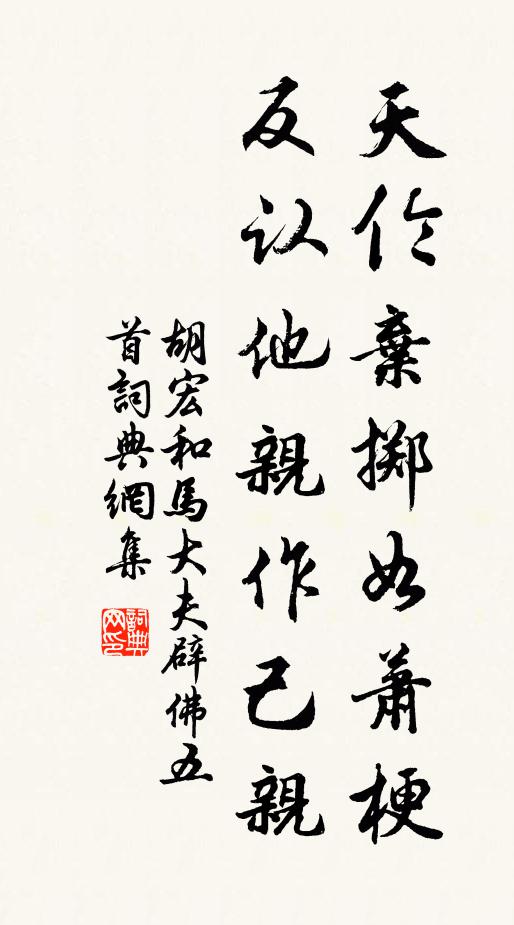 天伦棄掷如萧梗
反认他親作己親
胡宏和馬大夫辟佛五
首詞典網集
詞典
网印